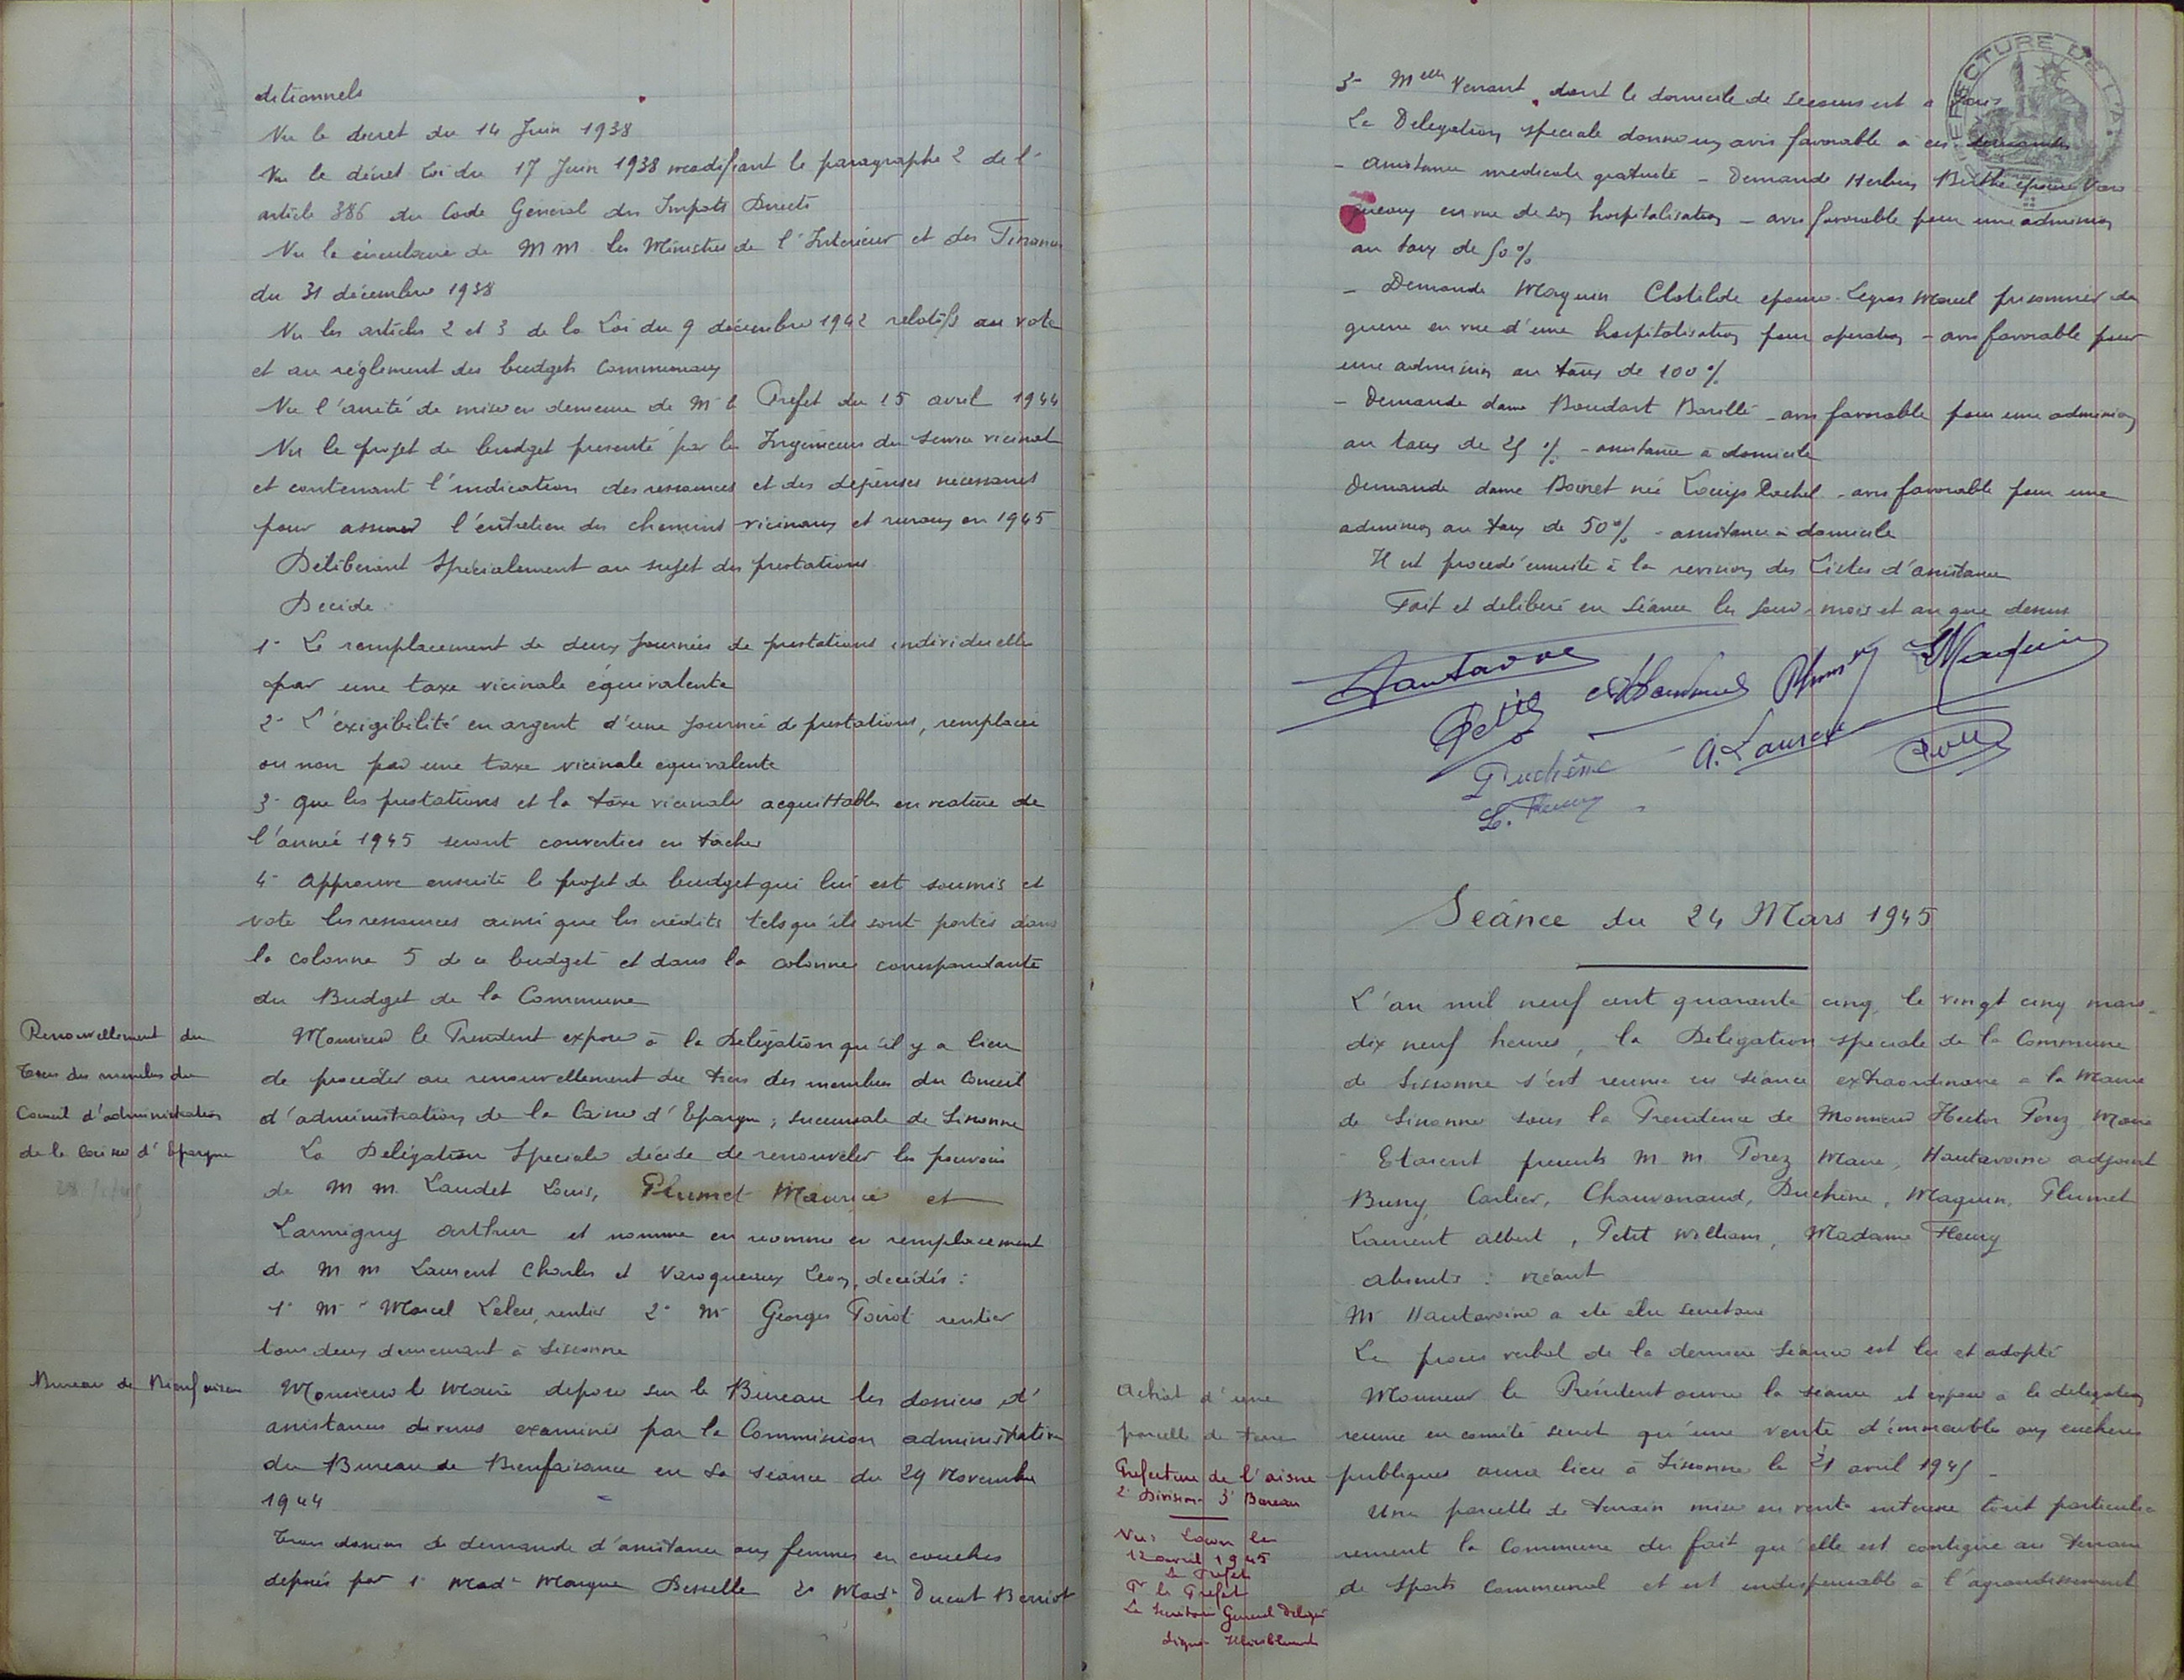 ditionnels
Vu le decret du 14 Juin 1938
Vu le décret loi du 17 Juin 1938 modifiant le paragraphe 2 de l'
article 386 du Code Général des Impots Directs
Vu la circulaire de M M les Ministres de l'Intérieur et des Finances
du 31 décembre 1938
Vu les articles 2 et 3 de la Loi du 9 décembre 1942 relatifs au vote
et au réglement des budgets communaux
Vu l'arrêté de mise en demeure de Mr le Prefet du 15 avril 1944
Vu le projet de budget presenté par les Ingenieurs du Service vicinal
et contenant l'indication des ressources et des dépenses necessaires
pour assurer l'entretien des chemins vicinaux et ruraux en 1945
Déliberant Specialement au sujet des prestations
Decide :
1- Le remplacement de deux Journées de prestations individuelles
par une taxe vicinale équivalente
2- L'éxigibilité en argent d'une Journée de prestations, remplacée
ou non par une taxe vicinale equivalente
3- que les prestations et la taxe vicinale acquittables en nature de
l'année 1945 seront converties en tâches
4- Approuve ensuite le projet de budget qui lui est soumis et
vote les ressources ainsi que les crédits tels qu'ils sont portés dans
la colonne 5 de ce budget et dans la colonne correspondante
du Budget de la Commune
Renouvellement du
tiers des membres du
Conseil d'administration
de la Caisse d'Epargne
Monsieur le President expose à la Delégation qu'il y a lieu
de proceder au renouvellement du tiers des membres du Conseil
d'administration de la Caisse d'Epargne, succursale de Sissonne
La Delégation Speciale décide de renouveler les pouvoirs
de M M. Laudet Louis, Plumet Maurice et
Larmigny Arthur et nomme en remplacement
de M M Laurent Charles et Varoqueaux Leon, decédés :
1- Mr Marcel Leleu, rentier 2- Mr Georges Poirot rentier
tous deux demeurant à Sissonne
Bureau de Bienfaisance
Monsieur le Maire depose sur le Bureau les dossiers d'
assistances diverses examinés par la Commission administrative
du Bureau de Bienfaisance en sa séance du 29 Novembre
1944
Trois dossiers de demande d'assistance aux femmes en couches
deposés par 1- Made 2- Made
3- Melle Venant dont le domicile de secours est a Paris
La Delegation speciale donne un avis favorable à ces demandes
- assistance medicale gratuite - Demande Herbin Berthe epouse Varo
queaux en vue de son hospitalisation - avis favorable pour une admission
au taux de 50%
- Demande Maquin Clotilde epouse Legros Marcel prisonnier de
guerre en vue d'une hospitalisation pour operation - avis favorable pour
une admission au taux de 100%
- Demande dame Boudart Barillé - avis favorable pour une admission
au taux de 25 % - assistance à domicile
Demande dame Boinet née Rachel - avis favorable pour une
admission au taux de 50% - assistance à domicile
Il est procedé ensuite à la revision des Listes d'assistance
Fait et deliberé en Séance les jour, mois et an que dessus
Hautavoine
Petit
Maquin
Duchêne
A. Laurent
L. Fleury
Seánce du 24 Mars 1945
L'an mil neuf cent quarante cinq, le vingt cinq mars
dix neuf heures, la Delégation speciale de la Commune
de Sissonne s'est reunie en séance extraordinaire a la Mairie
de Sissonne sous la Presidence de Monsieur Hector Porez Maire
Etaient presents M. M. Porez Maire, Hautavoine adjoint
Carlier, Chauvonaud, Duchêne, Maquin, Plumet
Laurent Albert, Petit William, Madame Fleury
absents : néant
Mr Hautavoine a été élu secretaire
Le proces verbal de la derniere séance est lu et adopté
Achat d'une
parcelle de terre
Prefecture de l'aisne
2e Division 3e Bureau
Vu : Laon le
12 avril 1945
Le Prefet
Pr le Prefet
Le Secretaire General Delegué
Signé
Monsieur le Président ouvre la séance et expose a la délegation
reunie en comité secret qu'une vente d'immeubles aux encheres
publiques aura lieu à Sissonne le 21 avril 1945 -
Une parcelle de terrain mise en vente interesse tout particulie
rement la Commune du fait qu'elle est contigüe au terrain
de Sports Communal et est indispensable à l'agrandissement